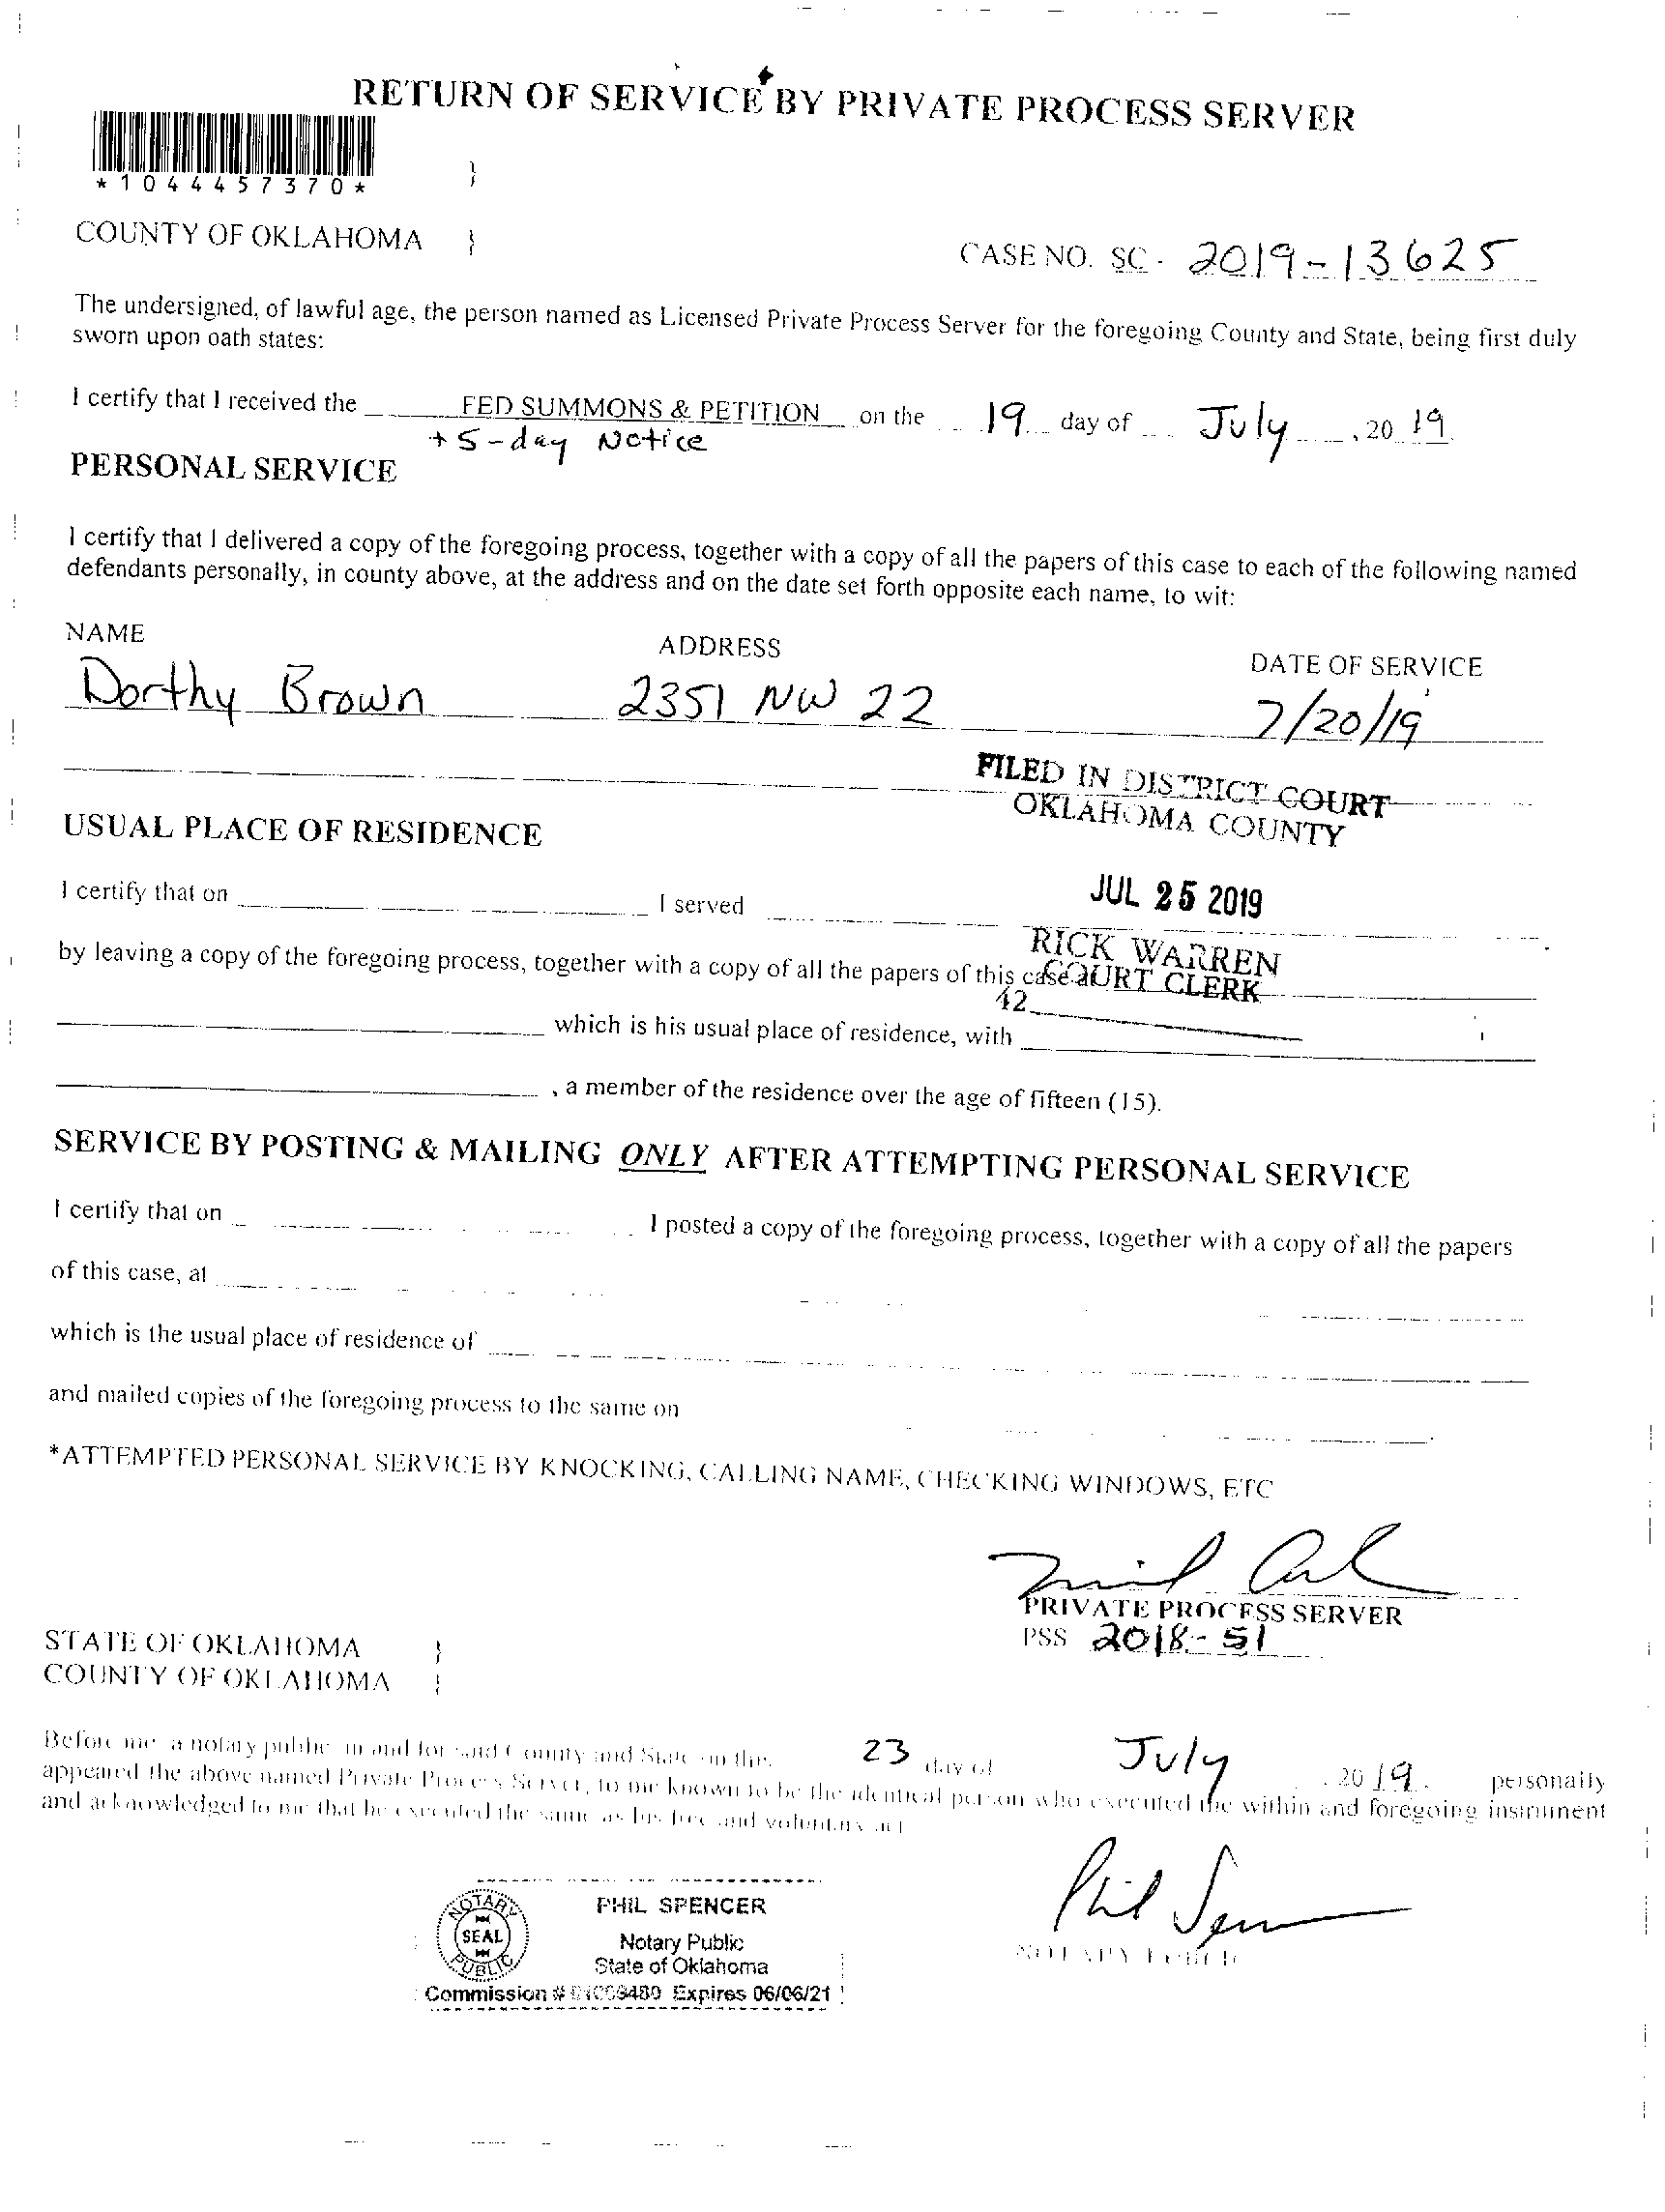 RETURN OF SERVICE BY PRIVATE PROCESS SERVER
*1044457370* }
COUNTY OF OKLAHOMA }
CASE NO. SC - 2019-13625
The undersigned, of lawful age, the person named as Licensed Private Process Server for the foregoing County and State, being first duly
sworn upon oath states:
I certify that I received the FED SUMMONS & PETITION on the 19 day of July, 20 19
+ 5-day Notice
PERSONAL SERVICE
I certify that I delivered a copy of the foregoing process, together with a copy of all the papers of this case to each of the following named
defendants personally, in county above, at the address and on the date set forth opposite each name, to wit:
NAME ADDRESS DATE OF SERVICE
Dorthy Brown 2351 NW 22 7/20/19
FILED IN DISTRICT COURT
OKLAHOMA COUNTY
USUAL PLACE OF RESIDENCE
JUL 25 2019
I certify that on I served
RICK WARREN
COURT CLERK
by leaving a copy of the foregoing process, together with a copy of all the papers of this case at
42
which is his usual place of residence, with
, a member of the residence over the age of fifteen (15).
SERVICE BY POSTING & MAILING ONLY AFTER ATTEMPTING PERSONAL SERVICE
I certify that on I posted a copy of the foregoing process, together with a copy of all the papers
of this case, at
which is the usual place of residence of
and mailed copies of the foregoing process to the same on
*ATTEMPTED PERSONAL SERVICE BY KNOCKING, CALLING NAME, CHECKING WINDOWS, ETC
PRIVATE PROCESS SERVER
PSS 2018-51
STATE OF OKLAHOMA }
COUNTY OF OKLAHOMA }
Before me a notary public in and for said County and State on this 23 day of July, 20 19. personally
appeared the above named Private Process Server, to me known to be the identical person who executed the within and foregoing instrument
and acknowledged to me that he executed the same as his free and voluntary act
Phil Spencer
NOTARY PUBLIC
NOTARY SEAL PUBLIC
PHIL SPENCER
Notary Public
State of Oklahoma
Commission # Expires 06/06/21